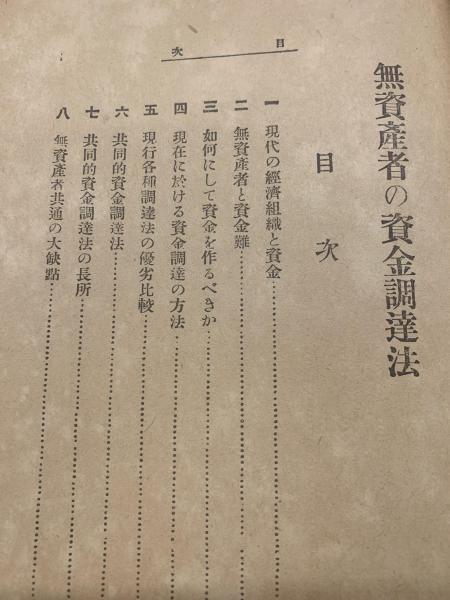 目次
無資產者の資金調達法
目次
一 現代の經濟組織と資金
二 無資產者と資金難
三 如何にして資金を作るべきか
四 現在に於ける資金調達の方法
五 現行各種調達法の優劣比較
六 共同的資金調達法
七 共同的資金調達法の長所
八 無資產者共通の大缺點